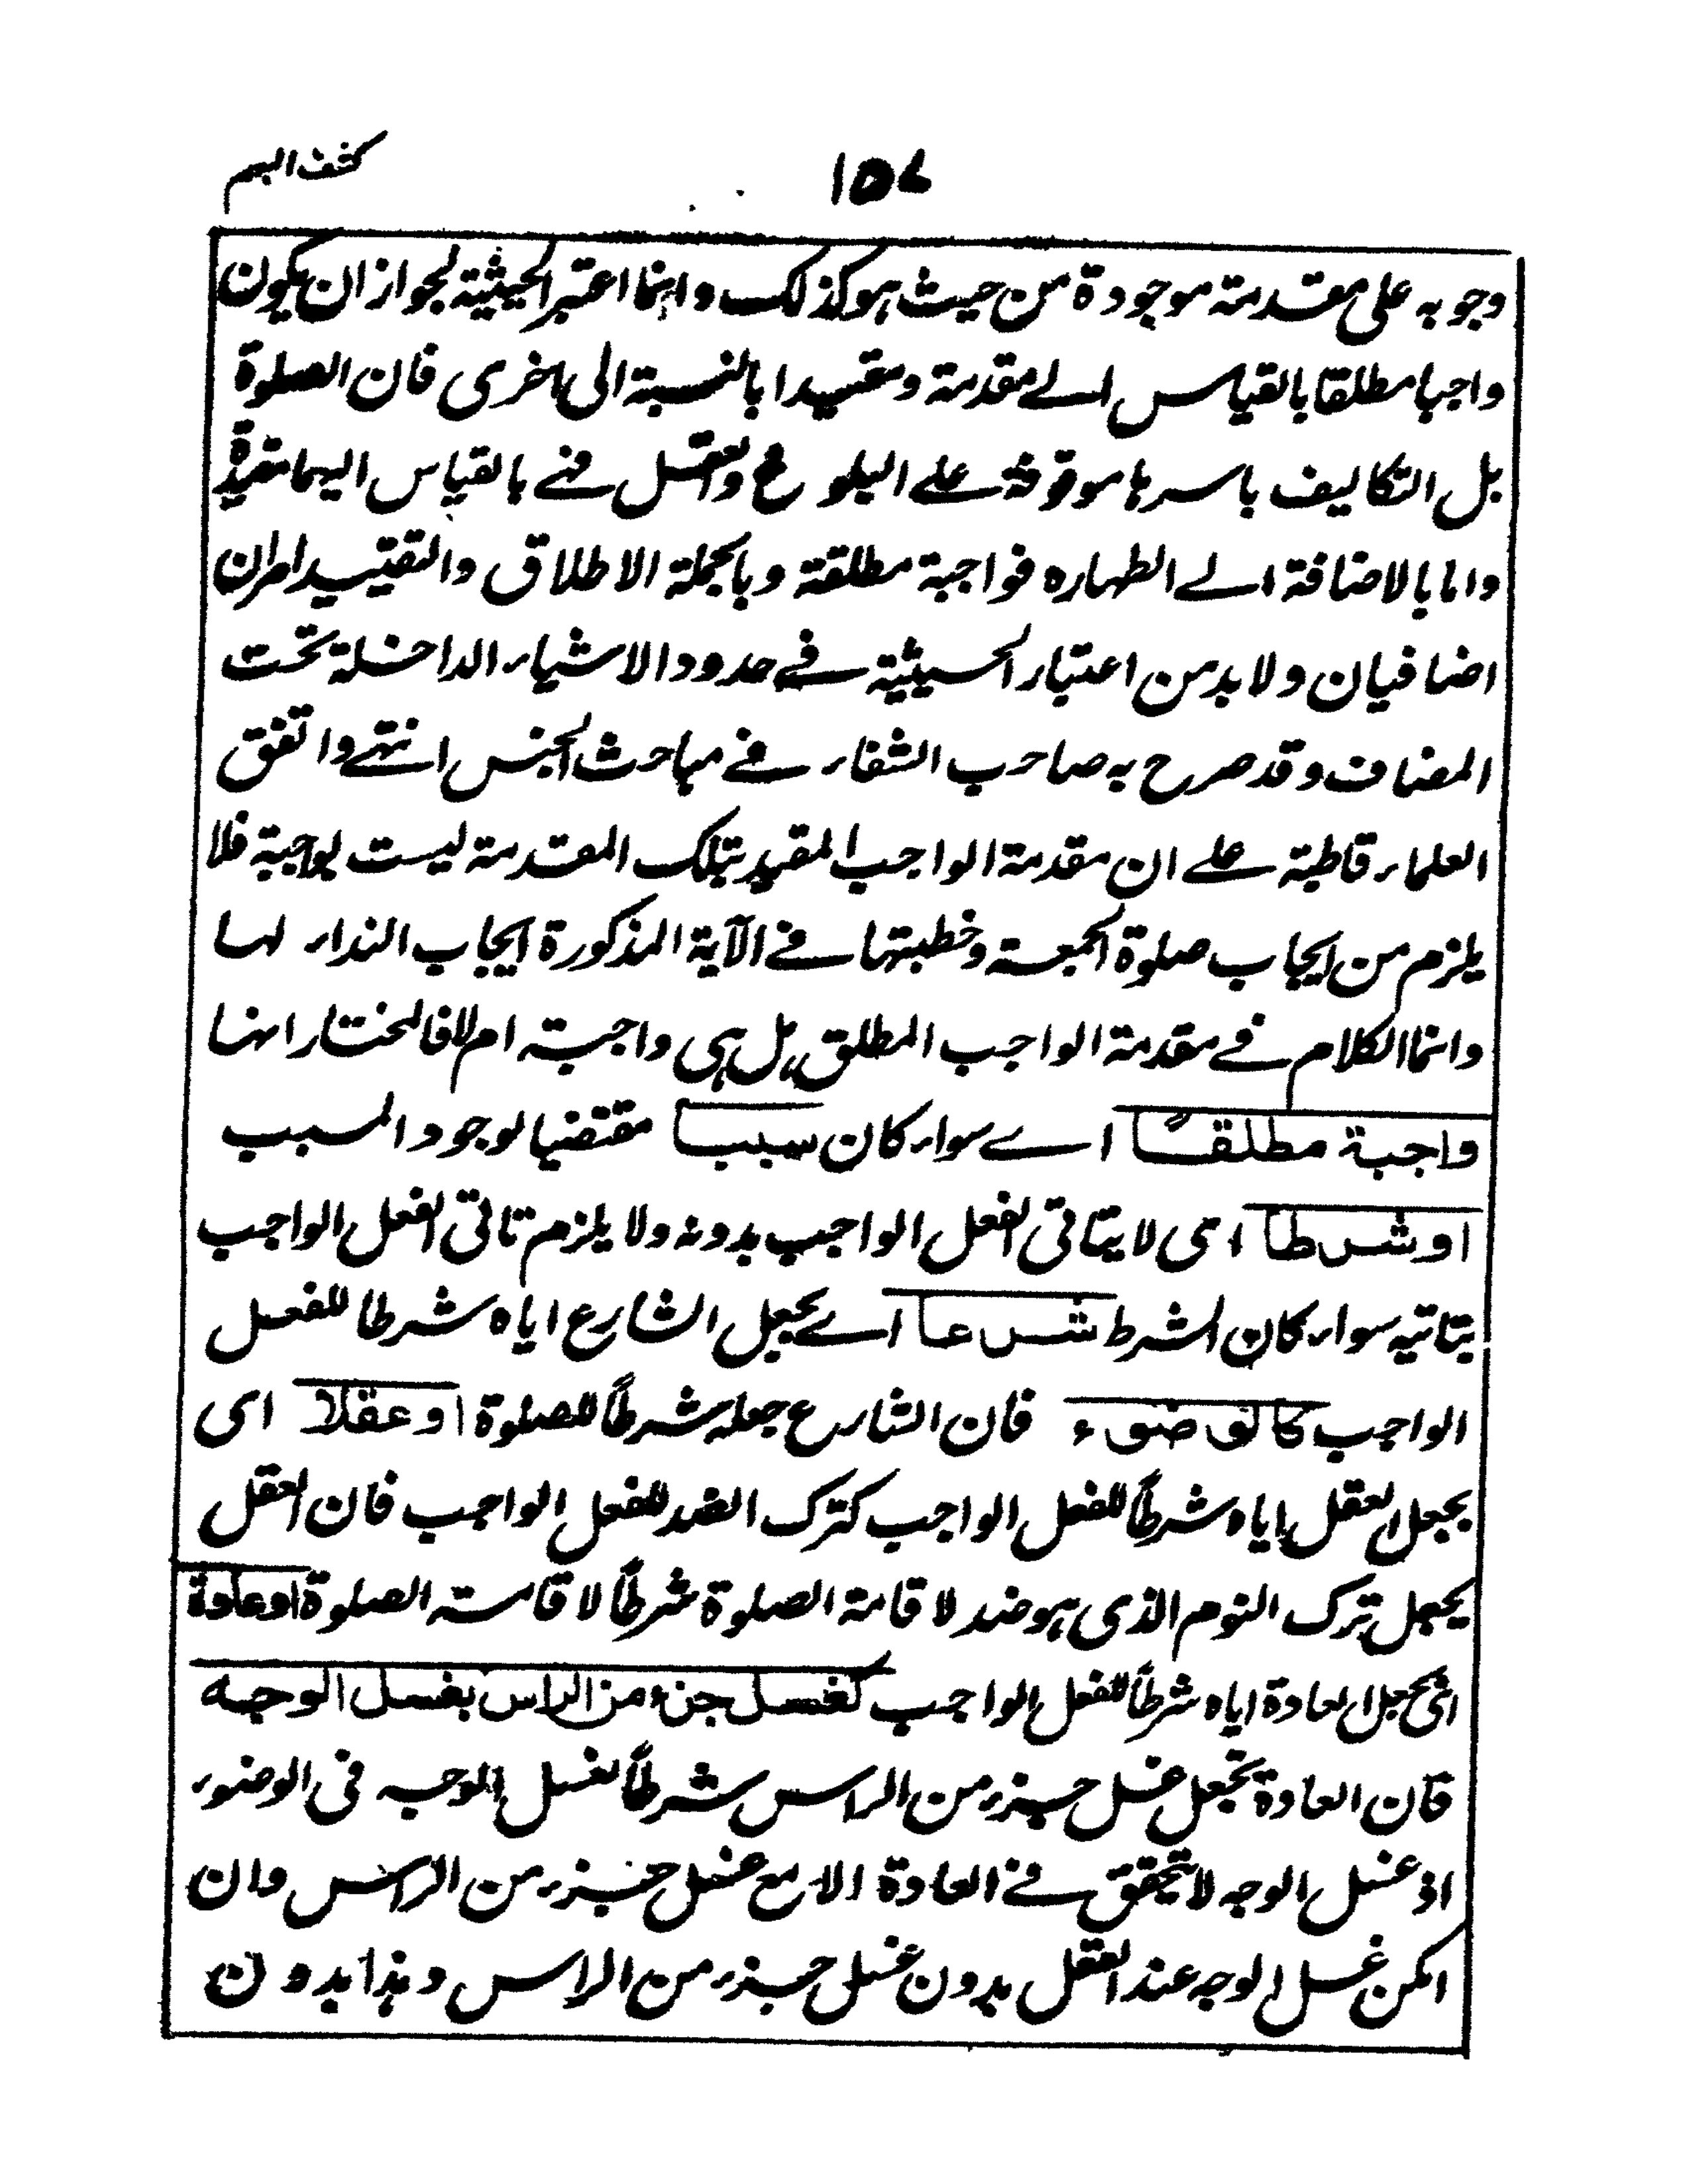 كشف المبهم
١٥٧
وجوبه على مقدمة موجودة من حيث هو كذلك وانما اعتبر الحيثية لجواز ان يكون
واجبا مطلقا بالقياس الے مقدمة ومقيدا بالنسبة الى اخرى فان الصلوة
بل التكاليف باسرها موقوفة علے البلوغ والعقل فهے بالقياس اليهما مقيدة
واما بالاضافة الے الطهاره فواجبة مطلقة وبالجملة الاطلاق والتقييد امران
اضافيان ولا بد من اعتبار الحيثية فے حدود الاشياء الداخلة تحت
المضاف وقد صرح به صاحب الشفاء فے مباحث الجنس انتهے واتفق
العلماء قاطبة علے ان مقدمة الواجب المقيد بتلك المقدمة ليست بواجبة فلا
يلزم من ايجاب صلوة الجمعة وخطبتها فے الآية المذكورة ايجاب النداء لها
وانما الكلام فے مقدمة الواجب المطلق هل هى واجبة ام لا فالمختار انها
واجبة مطلقاً اے سواء كان سببا مقتضيا لوجود المسبب
او شرطا اى لا يتاتى الفعل الواجب بدونه ولا يلزم تاتى الفعل الواجب
بتاتيه سواء كان الشرط شرعا اے بجعل الشارع اياه شرطا للفعل
الواجب كالوضوء فان الشارع جعله شرطاً للصلوة او عقلا اى
بجعل العقل اياه شرطاً للفعل الواجب كترك الضد للفعل الواجب فان العقل
يجعل ترك النوم الذى هو ضد لاقامة الصلوة شرطاً لاقامته الصلوة او عادة
اى بجعل العادة اياه شرطاً للفعل الواجب كغسل جزء من الراس بغسل الوجه
فان العادة تجعل غسل جزء من الراس شرطاً لغسل الوجه فى الوضوء
اذ غسل الوجه لا تحقق فے العادة الا مع غسل جزء من الراس وان
امكن غسل الوجه عند العقل بدون غسل جزء من الراس وهذا بدون